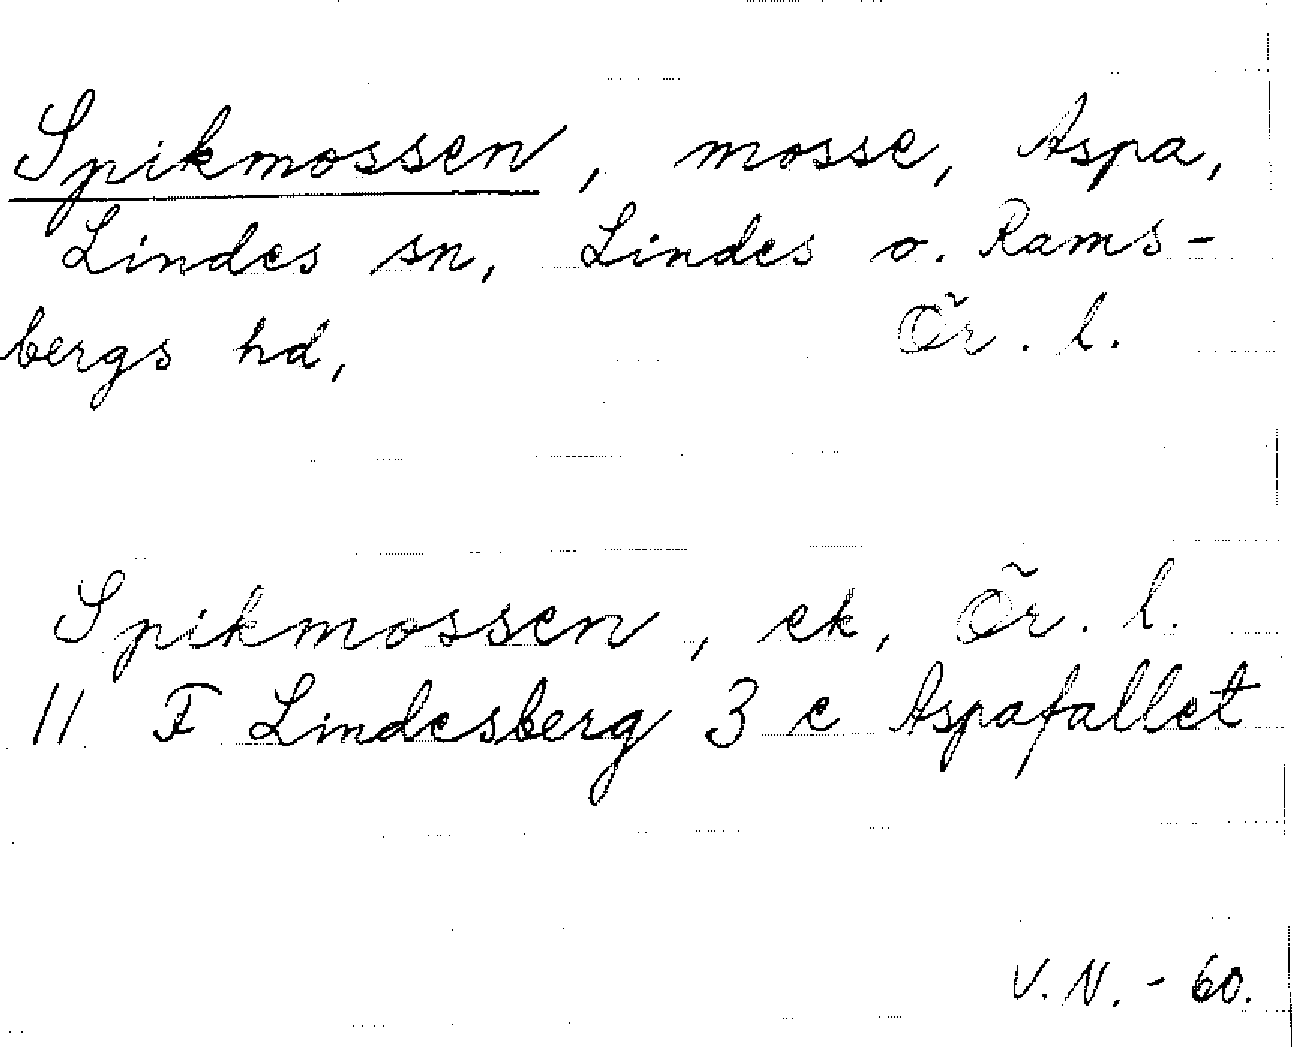 Spikmossen, mosse, Aspa,
Lindes sn, Lindes o. Rams-
bergs hd, Ör. l.
Spikmossen, ek, Ör. l.
11 F Lindesberg 3 e Aspafallet
V. N. - 60.